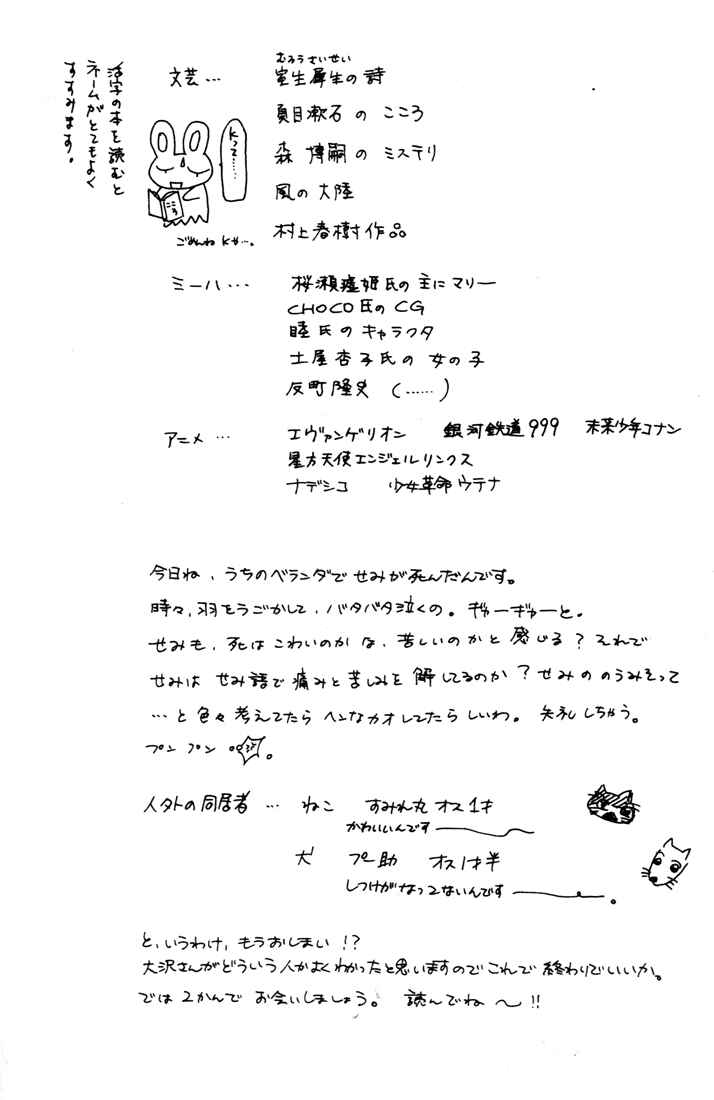 活字の本を読むと
ネームがとてもよく
すすみます。
文芸…
むろうさいせい
室生犀生の詩
夏目漱石の こころ
森 博嗣の ミステリ
風の大陸
村上春樹作品
Kって……
こころ
ごめんねKや…。
ミーハ…
桜瀬琥姫氏の主にマリー
CHOCO氏のCG
睦氏のキャラクタ
土屋杏子氏の女の子
反町隆史 (……)
アニメ…
エヴァンゲリオン 銀河鉄道999 未来少年コナン
星方天使エンジェルリンクス
ナデシコ 少女革命ウテナ
今日ね、うちのベランダでせみが死んだんです。
時々、羽をうごかして、バタバタ泣くの。ギャーギャーと。
せみも、死はこわいのかな、苦しいのかと感じる?それで
せみは せみ語で痛みと苦しみを解してるのか?せみののうみそって
…と色々考えてたらヘンなカオしてたらしいわ。失礼しちゃう。
プンプン。
人外の同居者… ねこ すみれ丸 オス1才
かわいいんです
犬 プー助 オス1才半
しつけがなってないんです。
と、いうわけ、もうおしまい!?
大沢さんがどういう人かよくわかったと思いますのでこれで終わりでいいか。
では2かんでお会いしましょう。 読んでね〜!!